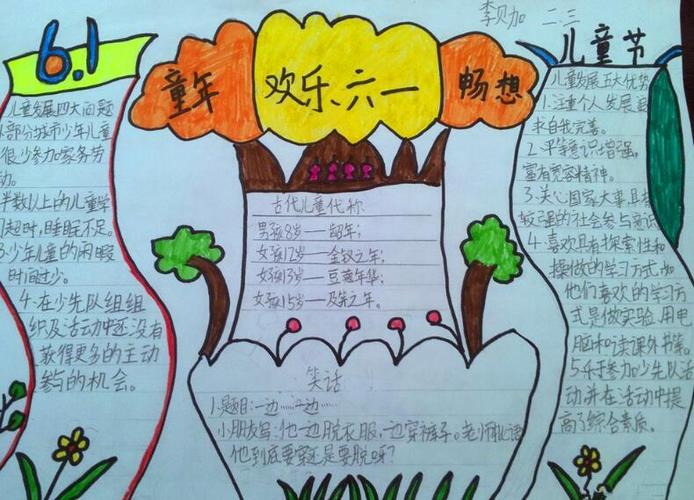 李贝加 二.三
6.1
童年
欢乐六一
畅想
儿童节
儿童发展四大问题
部分城市少年儿童
很少参加家务劳
动。
半数以上的儿童学
超时,睡眠不足。
3.少年儿童的闲暇
时间过少。
4.在少先队组
织及活动中还没有
获得更多的主动
参与的机会。
古代儿童代称
男孩8岁——龆年;
女孩12岁——金钗之年;
女孩13岁——豆蔻年华;
女孩15岁——及笄之年。
笑话
1.题目:一边……一边
小朋友写:他一边脱衣服,一边穿裤子。老师批语
他到底要穿还是要脱呀?
儿童发展五大优势
1.注重个人发展
求自我完善。
2.平等意识增强,
富有宽容精神。
3.关心国家大事,具有
较强的社会参与意识
4.喜欢具有探索性和
操做的学习方式,如
他们喜欢的学习方
式是做实验、用电
脑和读课外书等。
5.乐于参加少先队活
动,并在活动中提
高了综合素质。